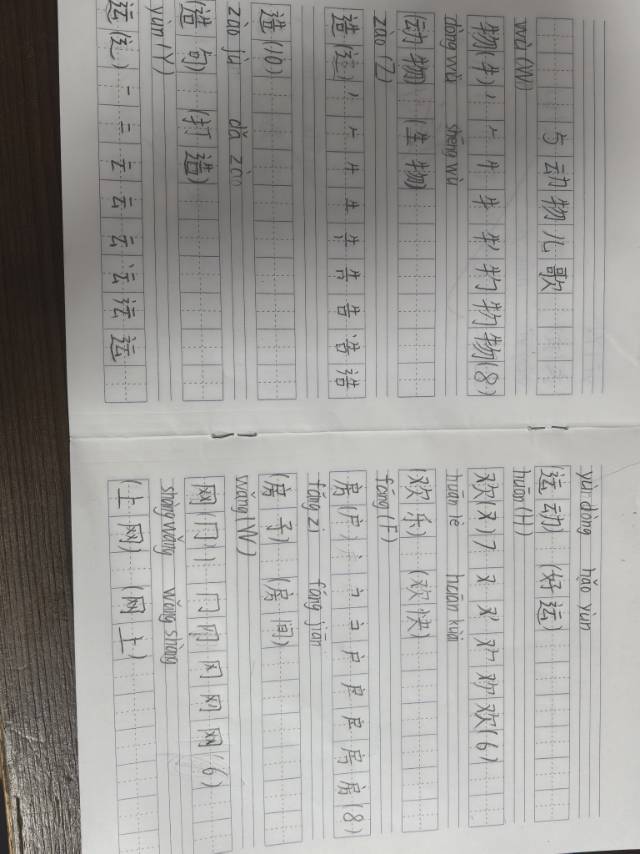 5 动物儿歌
wù (W)
物(牜)丿 𠂉 牛 牜 牜 牞 物 物(8)
dòng wù shēng wù
动物 (生物)
zào (Z)
造(辶)丿 𠂉 𠂉 生 牛 告 告 诰 诰
造(10)
zào jù dǎ zào
(造句) (打造)
yùn (Y)
运(辶)一 二 云 云 云 运 运 运
yùn dòng hǎo yùn
运动) (好运)
huān (H)
欢(又)フ 又 欢 欢 欢 欢(6)
huān lè huān kuài
(欢乐) (欢快)
fáng (F)
房(户)丶 ㇇ コ 户 户 户 房 房(8)
fáng zi fáng jiān
(房子) (房间)
wǎng (W)
网(冂)丨 冂 冂 冈 网 网(6)
shàng wǎng wǎng shàng
(上网) (网上)